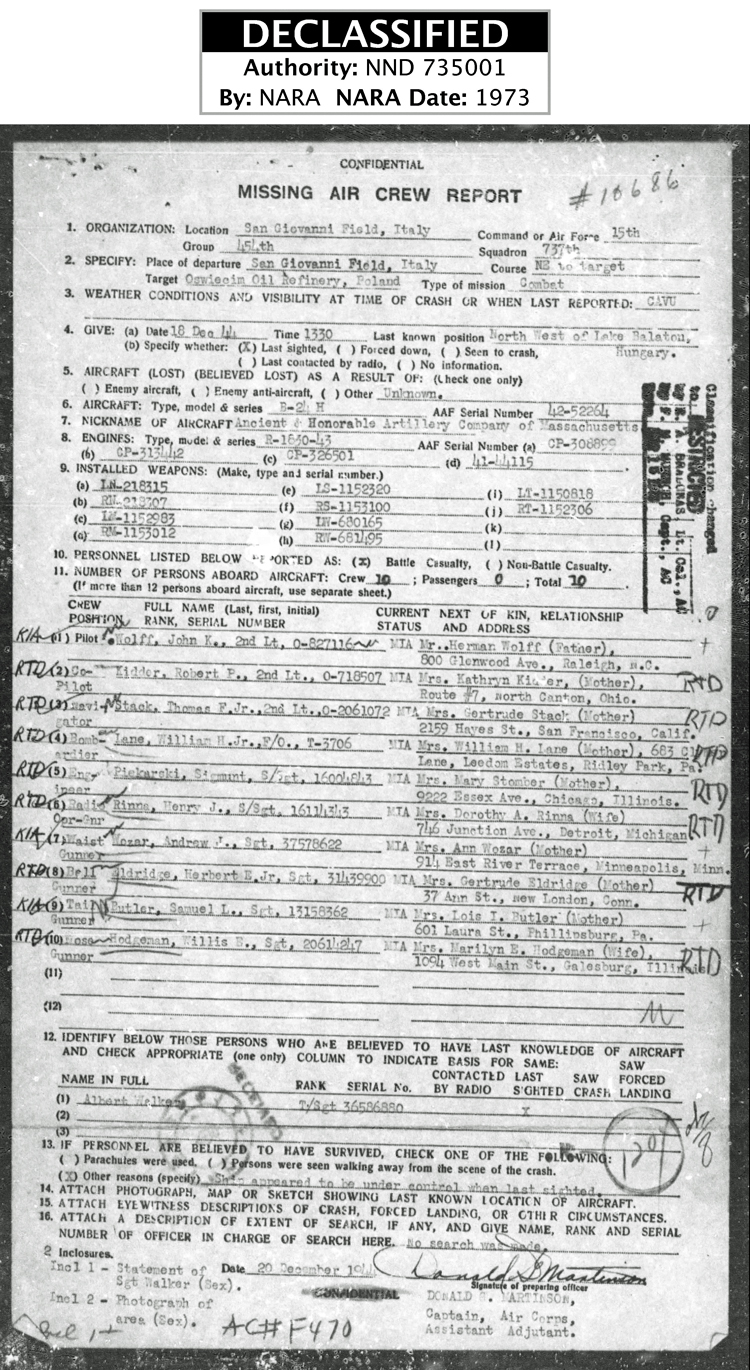 DECLASSIFIED
Authority: NND 735001
By: NARA  NARA Date: 1973
CONFIDENTIAL
MISSING AIR CREW REPORT
#10686
1. ORGANIZATION: Location San Giovanni Field, Italy Command or Air Force 15th
Group 454th Squadron 737th
2. SPECIFY: Place of departure San Giovanni Field, Italy Course NE to target
Target Oswiecim Oil Refinery, Poland Type of mission Combat
3. WEATHER CONDITIONS AND VISIBILITY AT TIME OF CRASH OR WHEN LAST REPORTED: CAVU
4. GIVE: (a) Date 18 Dec 44 Time 1330 Last known position North West of Lake Balatou,
(b) Specify whether: (X) Last sighted, ( ) Forced down, ( ) Seen to crash, Hungary.
( ) Last contacted by radio, ( ) No information.
5. AIRCRAFT (LOST) (BELIEVED LOST) AS A RESULT OF: (Check one only)
( ) Enemy aircraft, ( ) Enemy anti-aircraft, ( ) Other Unknown.
6. AIRCRAFT: Type, model & series B-24 H AAF Serial Number 42-52264
7. NICKNAME OF AIRCRAFT Ancient & Honorable Artillery Company of Massachusetts
8. ENGINES: Type, model & series R-1830-43 AAF Serial Number (a) CP-308899
(b) CP-313442 (c) CP-326501 (d) 41-44115
9. INSTALLED WEAPONS: (Make, type and serial number.)
(a) LN-218315 (e) LS-1152320 (i) LT-1150818
(b) RN-218307 (f) RS-1153100 (j) RT-1152306
(c) LM-1152983 (g) LW-680165 (k)
(d) RM-1153012 (h) RW-681495 (l)
10. PERSONNEL LISTED BELOW REPORTED AS: (X) Battle Casualty, ( ) Non-Battle Casualty.
11. NUMBER OF PERSONS ABOARD AIRCRAFT: Crew 10 ; Passengers 0 ; Total 10
(If more than 12 persons aboard aircraft, use separate sheet.)
Classification changed
to RESTRICTED
by E. A. BRADUNAS, Lt. Col., AC
Capt., AC
CREW FULL NAME (Last, first, initial) CURRENT NEXT OF KIN, RELATIONSHIP
POSITION RANK, SERIAL NUMBER STATUS AND ADDRESS
KIA (1) Pilot Wolff, John K., 2nd Lt, O-827116 MIA Mr. Herman Wolff (Father),
800 Glenwood Ave., Raleigh, N.C.
RTD (2) Co- Kidder, Robert P., 2nd Lt., O-718507 MIA Mrs. Kathryn Kidder, (Mother), RTD
Pilot Route #7, North Canton, Ohio.
RTD (3) Navi- Stack, Thomas F.Jr., 2nd Lt., O-2061072 MIA Mrs. Gertrude Stack (Mother) RTD
gator 2159 Hayes St., San Francisco, Calif.
RTD (4) Bomb- Lane, William H.Jr., F/O, T-3706 MIA Mrs. William H. Lane (Mother), 683 RTD
ardier Lane, Leedom Estates, Ridley Park, Pa.
RTD (5) Eng- Piekarski, Sigmunt, S/Sgt, 16004843 MIA Mrs. Mary Stomber (Mother), RTD
ineer 9222 Essex Ave., Chicago, Illinois.
RTD (6) Radio Rinna, Henry J., S/Sgt, 16114343 MIA Mrs. Dorothy A. Rinna (Wife) RTD
Opr-Gnr 746 Junction Ave., Detroit, Michigan
KIA (7) Waist Wozar, Andrew J., Sgt, 37578622 MIA Mrs. Ann Wozar (Mother)
Gunner 914 East River Terrace, Minneapolis, Minn.
RTD (8) Ball Eldridge, Herbert E.Jr, Sgt, 31439900 MIA Mrs. Gertrude Eldridge (Mother) RTD
Gunner 37 Ann St., New London, Conn.
KIA (9) Tail Butler, Samuel L., Sgt, 13158362 MIA Mrs. Lois I. Butler (Mother)
Gunner 601 Laura St., Phillipsburg, Pa.
RTD (10) Nose Hodgeman, Willis E., Sgt, 20614247 MIA Mrs. Marilyn E. Hodgeman (Wife), RTD
Gunner 1094 West Main St., Galesburg, Illinois
(11)
(12)
12. IDENTIFY BELOW THOSE PERSONS WHO ARE BELIEVED TO HAVE LAST KNOWLEDGE OF AIRCRAFT
AND CHECK APPROPRIATE (one only) COLUMN TO INDICATE BASIS FOR SAME: SAW
CONTACTED LAST SAW FORCED
NAME IN FULL RANK SERIAL No. BY RADIO SIGHTED CRASH LANDING
(1) Albert Walker T/Sgt 36586880 X
(2)
(3)
13. IF PERSONNEL ARE BELIEVED TO HAVE SURVIVED, CHECK ONE OF THE FOLLOWING:
( ) Parachutes were used. ( ) Persons were seen walking away from the scene of the crash.
(X) Other reasons (specify) Ship appeared to be under control when last sighted.
14. ATTACH PHOTOGRAPH, MAP OR SKETCH SHOWING LAST KNOWN LOCATION OF AIRCRAFT.
15. ATTACH EYEWITNESS DESCRIPTIONS OF CRASH, FORCED LANDING, OR OTHER CIRCUMSTANCES.
16. ATTACH A DESCRIPTION OF EXTENT OF SEARCH, IF ANY, AND GIVE NAME, RANK AND SERIAL
NUMBER OF OFFICER IN CHARGE OF SEARCH HERE. No search was made.
2 Inclosures.
Incl 1 - Statement of Date 20 December 1944 Donald S Martinson
Sgt Walker (Sex). Signature of preparing officer
Incl 2 - Photograph of CONFIDENTIAL DONALD S. MARTINSON,
area (Sex). Captain, Air Corps,
AC# F470 Assistant Adjutant.